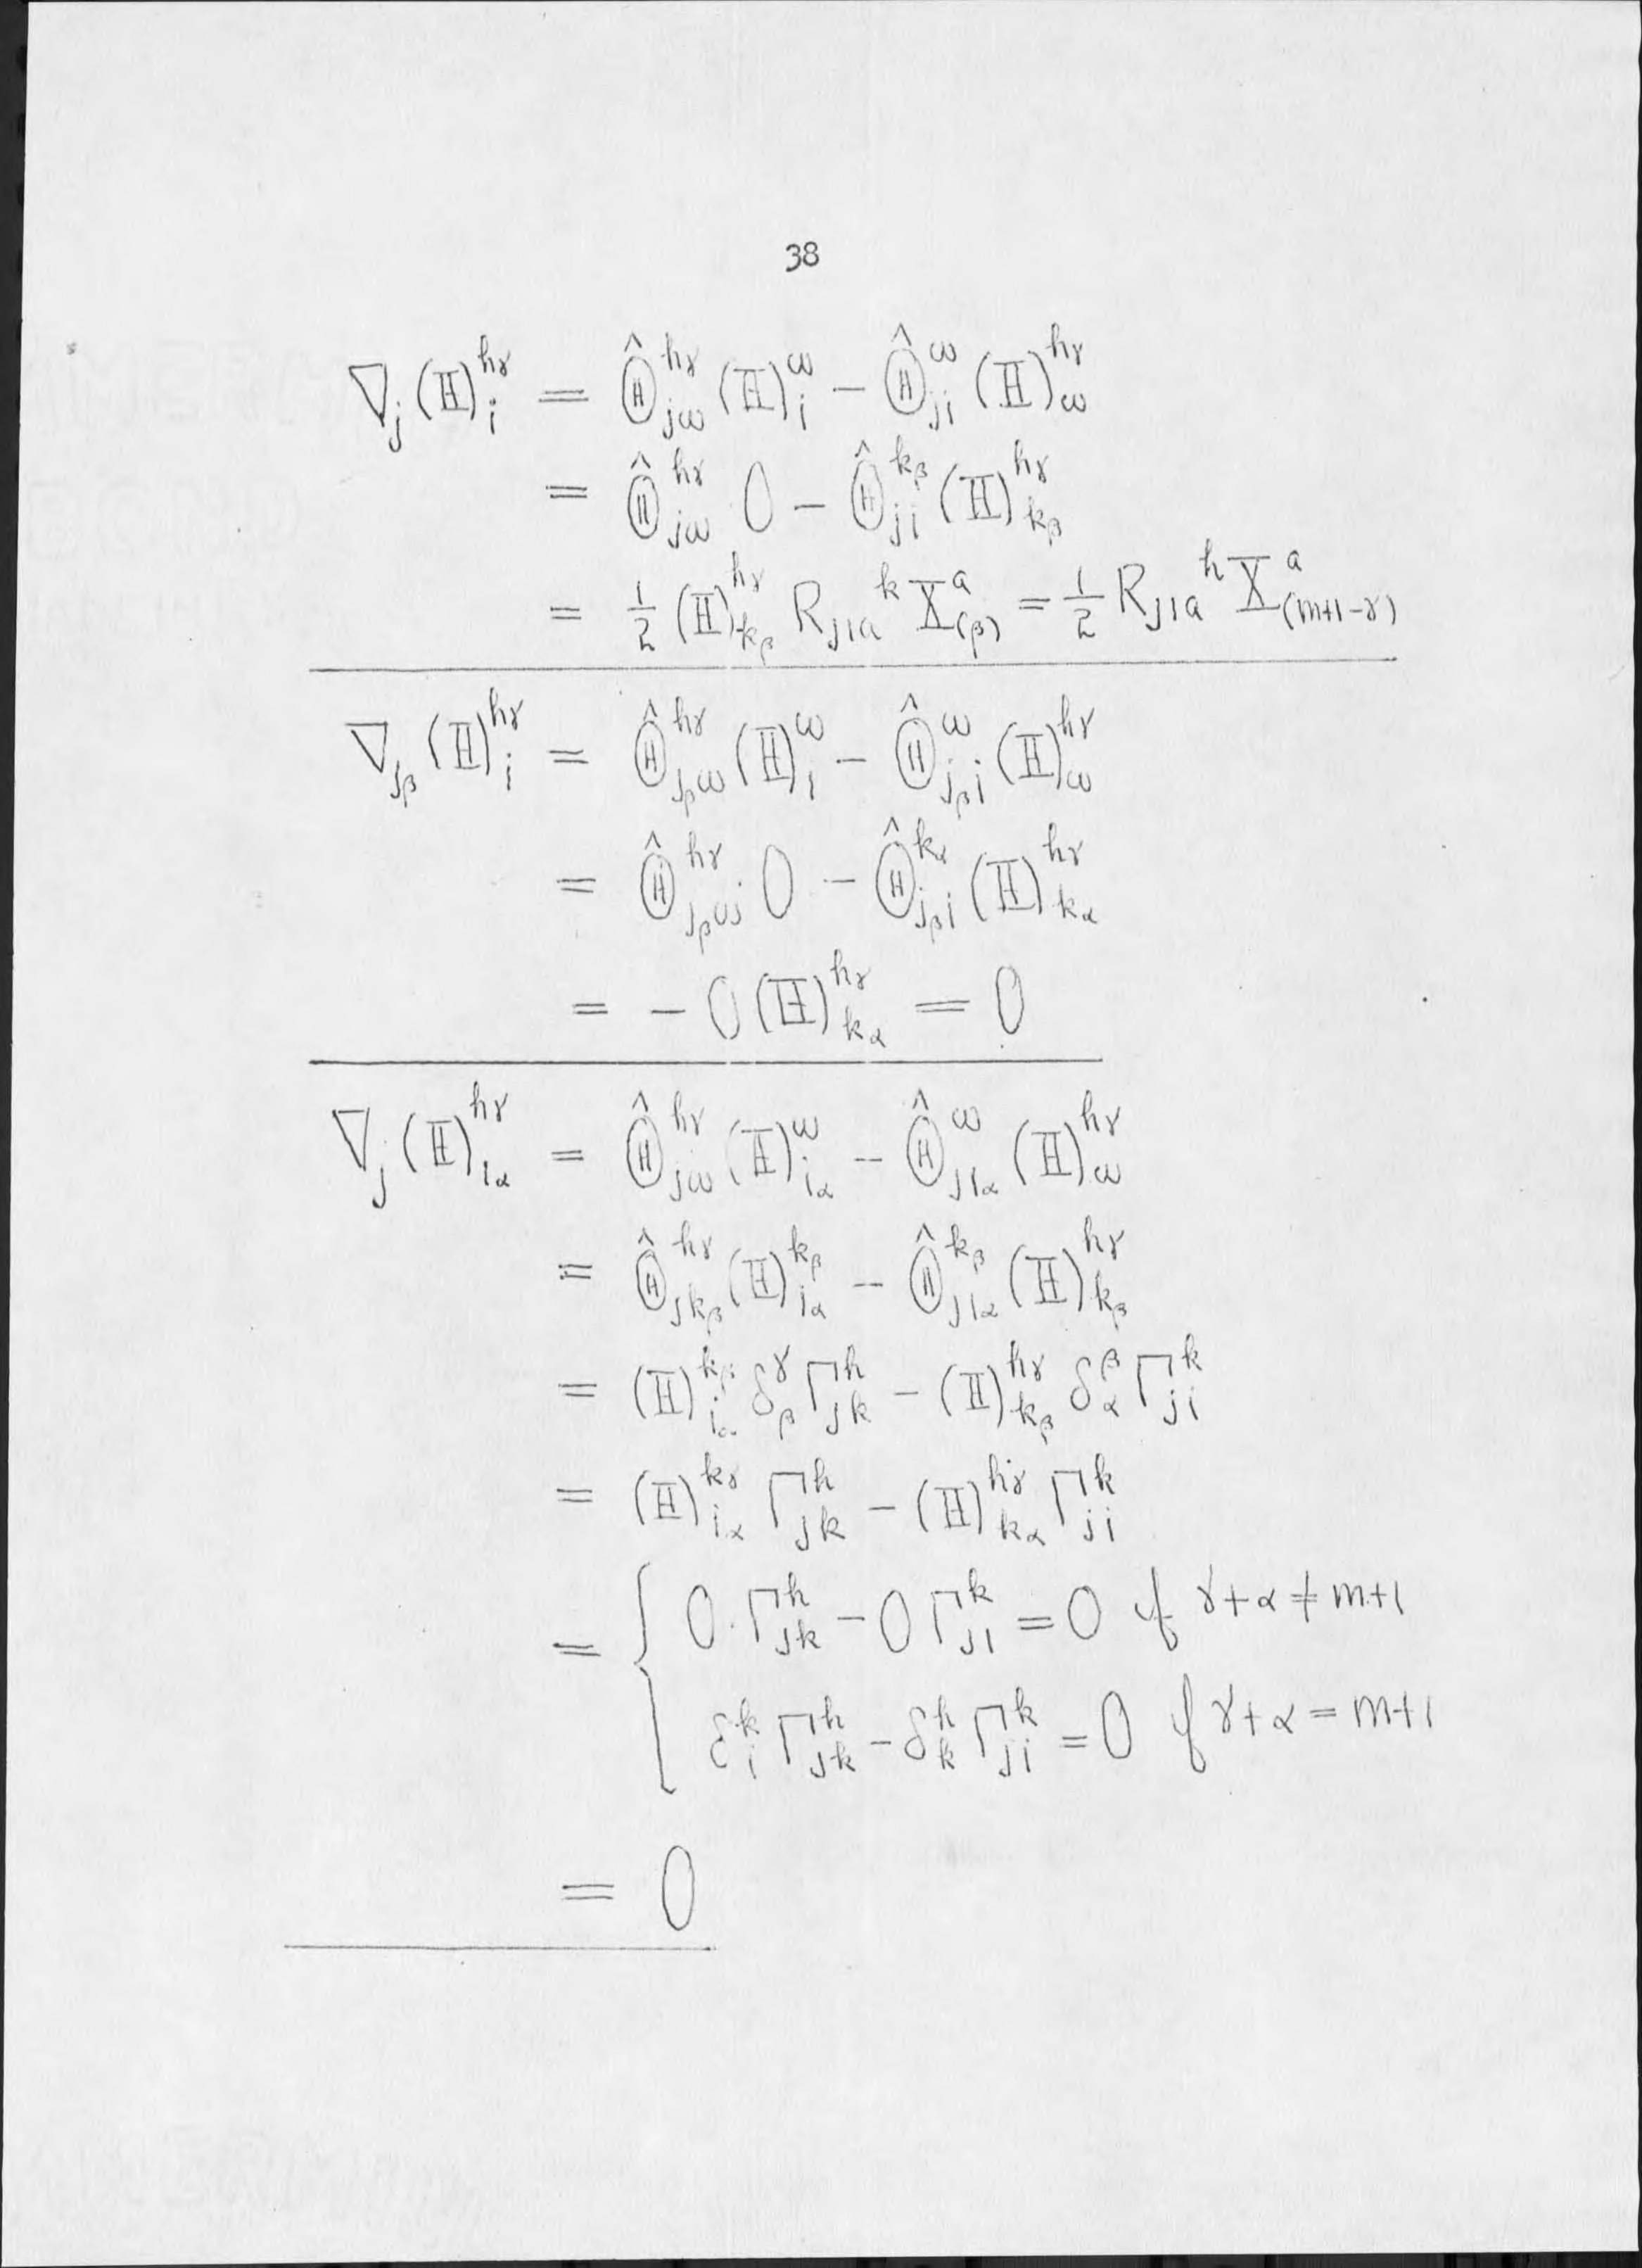 38
∇_j (Ⅱ)_i^{hγ} = \hat{Θ}_{jω}^{hγ} (Ⅱ)_i^ω − \hat{Θ}_{ji}^ω (Ⅱ)_ω^{hγ}
= \hat{Θ}_{jω}^{hγ} 0 − \hat{Θ}_{ji}^{k_β} (Ⅱ)_{k_β}^{hγ}
= \frac{1}{2} (Ⅱ)_{k_β}^{hγ} R_{jia}^k X_{(β)}^a = \frac{1}{2} R_{jia}^h X_{(m+1−γ)}^a
∇_{j_β} (Ⅱ)_i^{hγ} = \hat{Θ}_{j_βω}^{hγ} (Ⅱ)_i^ω − \hat{Θ}_{j_βi}^ω (Ⅱ)_ω^{hγ}
= \hat{Θ}_{j_βω}^{hγ} 0 − \hat{Θ}_{j_βi}^{k_α} (Ⅱ)_{k_α}^{hγ}
= − 0 (Ⅱ)_{k_α}^{hγ} = 0
∇_j (Ⅱ)_{i_α}^{hγ} = \hat{Θ}_{jω}^{hγ} (Ⅱ)_{i_α}^ω − \hat{Θ}_{ji_α}^ω (Ⅱ)_ω^{hγ}
= \hat{Θ}_{jk_β}^{hγ} (Ⅱ)_{i_α}^{k_β} − \hat{Θ}_{ji_α}^{k_β} (Ⅱ)_{k_β}^{hγ}
= (Ⅱ)_{i_α}^{k_β} δ_β^γ Γ_{jk}^h − (Ⅱ)_{k_β}^{hγ} δ_α^β Γ_{ji}^k
= (Ⅱ)_{i_α}^{kγ} Γ_{jk}^h − (Ⅱ)_{k_α}^{hγ} Γ_{ji}^k
= { 0·Γ_{jk}^h − 0 Γ_{ji}^k = 0 if γ+α ≠ m+1
δ_i^k Γ_{jk}^h − δ_k^h Γ_{ji}^k = 0 if γ+α = m+1
= 0